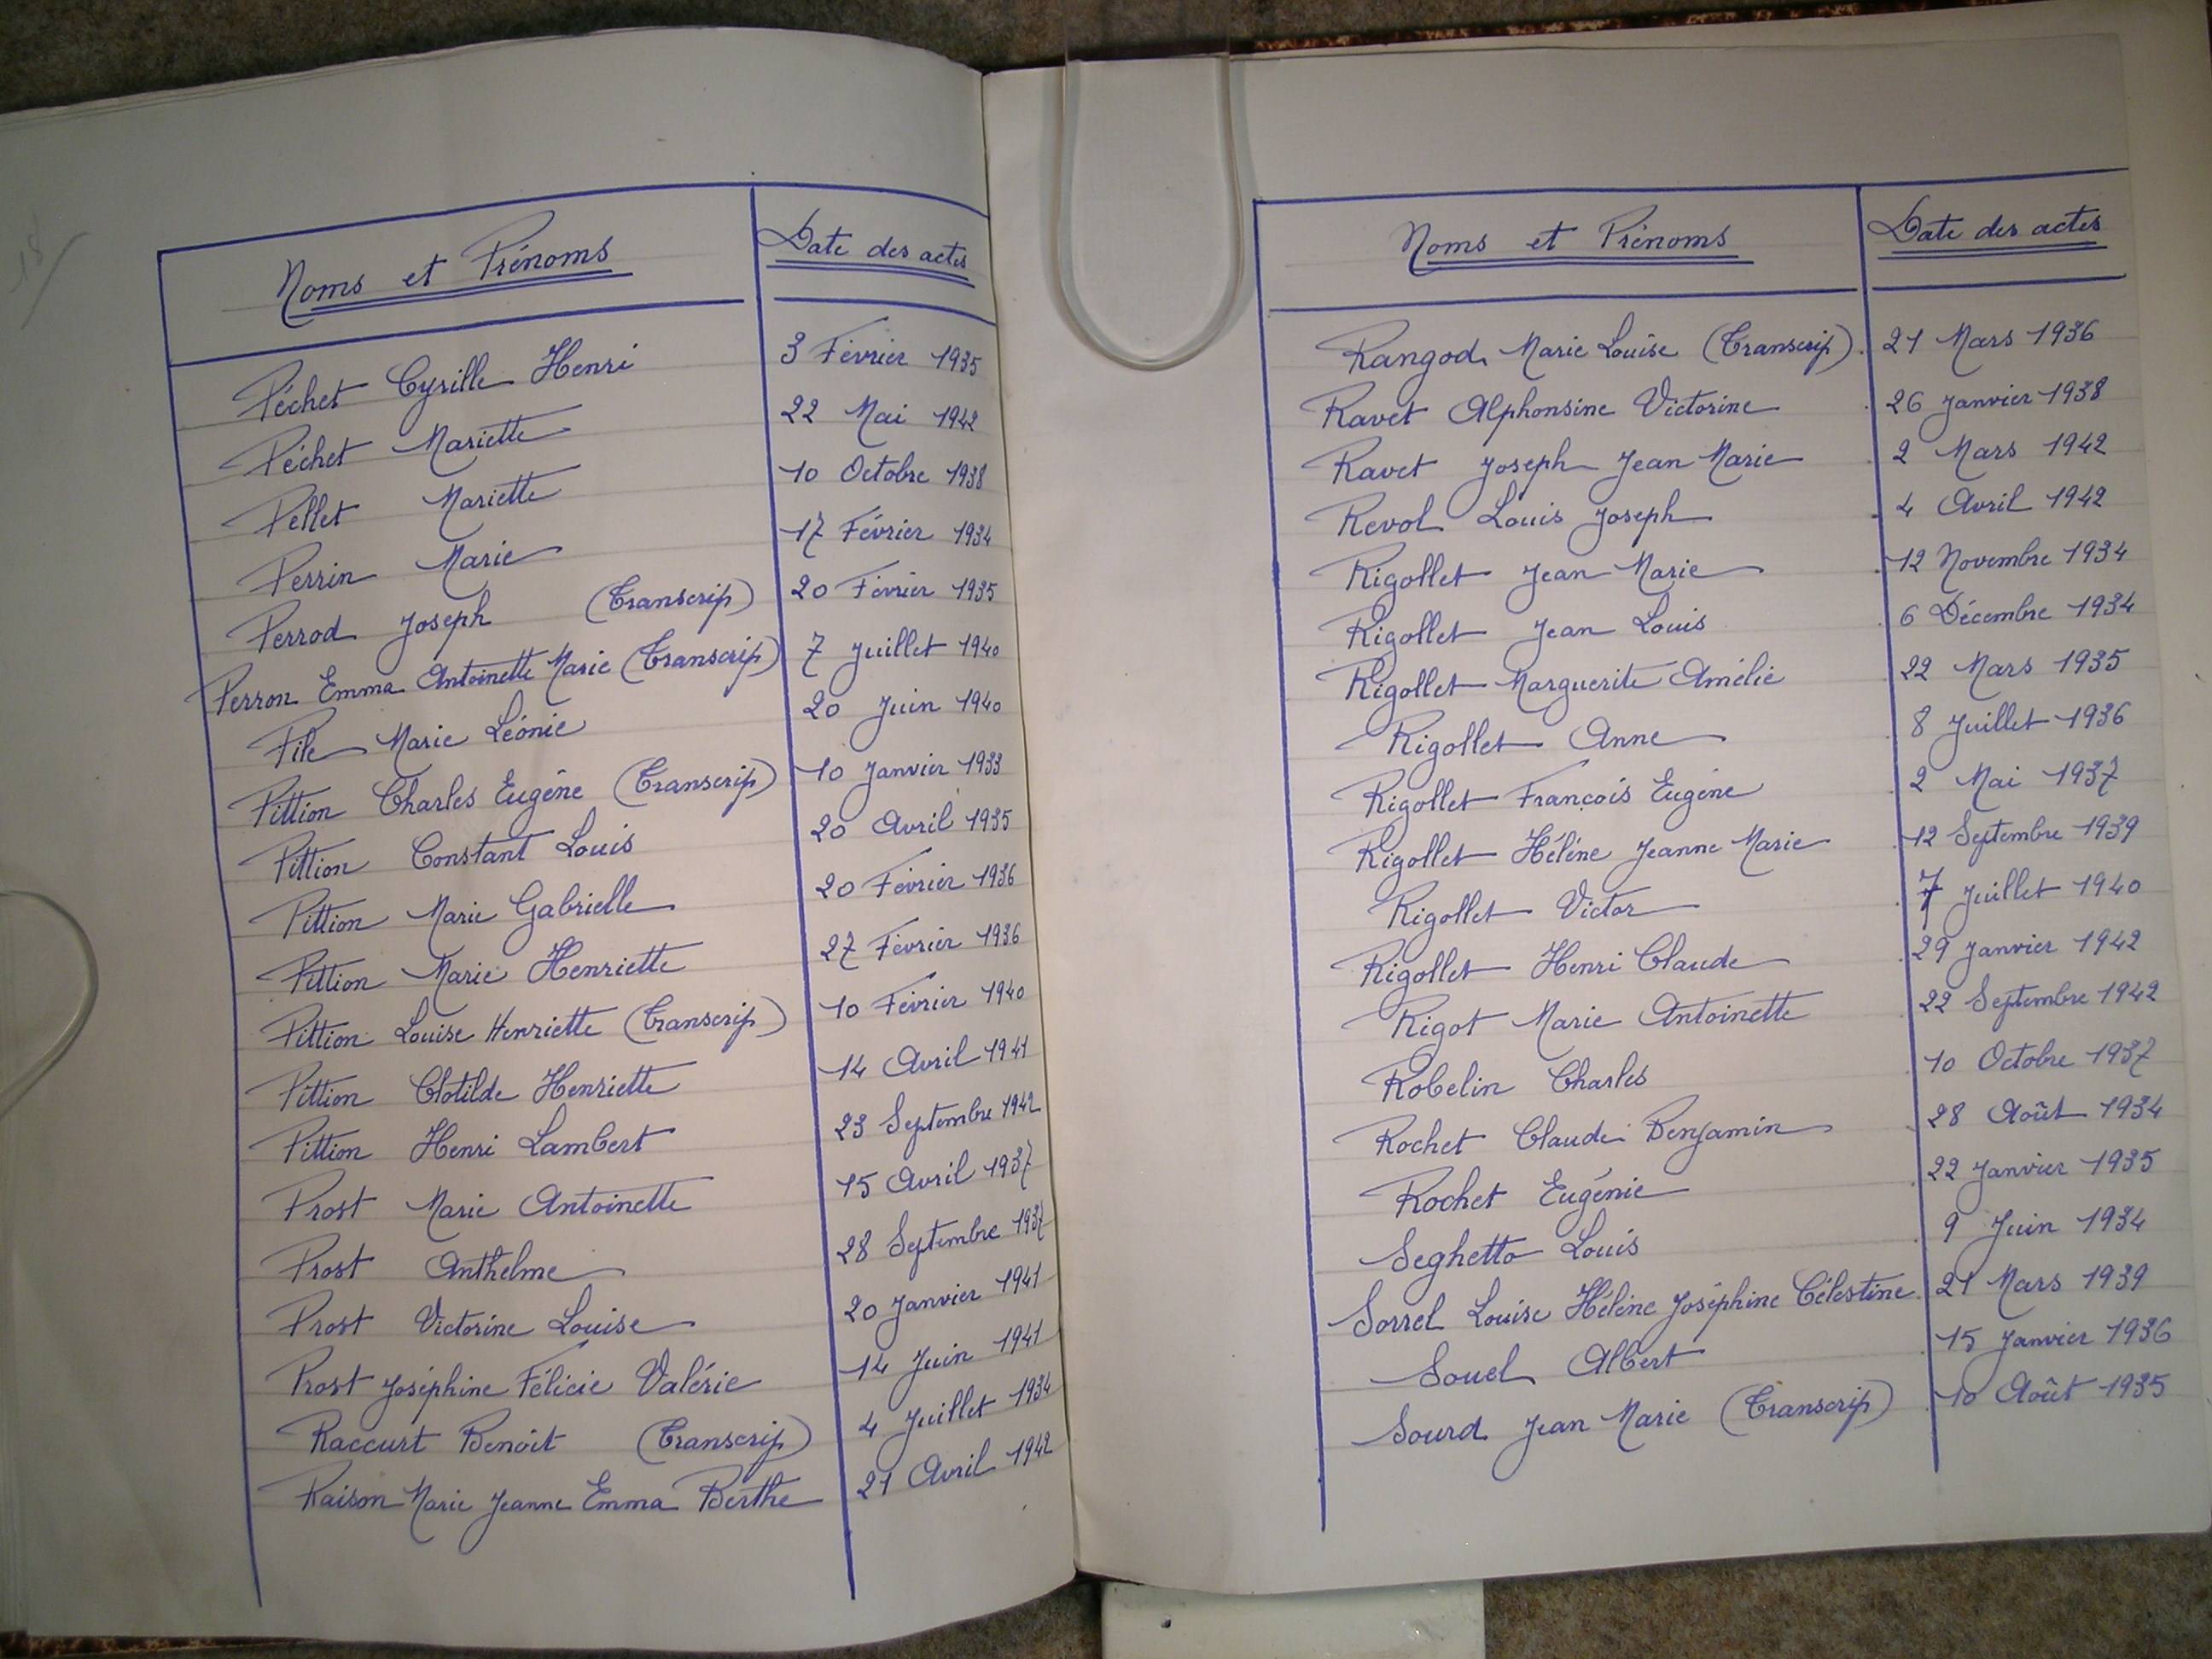 Noms et Prénoms Date des actes
Péchet Cyrille Henri 3 Février 1935
Péchet Mariette 22 Mai 1942
Pellet Mariette 10 Octobre 1938
Perrin Marie 17 Février 1934
Perrod Joseph (Transcrip) 20 Février 1935
Perron Emma Antoinette Marie (Transcrip) 7 Juillet 1940
File Marie Léonie 20 Juin 1940
Pittion Charles Eugène (Transcrip) 10 Janvier 1933
Pittion Constant Louis 20 Avril 1935
Pittion Marie Gabrielle 20 Février 1936
Pittion Marie Henriette 27 Février 1936
Pittion Louise Henriette (Transcrip) 10 Février 1940
Pittion Clotilde Henriette 14 Avril 1941
Pittion Henri Lambert 23 Septembre 1942
Prost Marie Antoinette 15 Avril 1937
Prost Anthelme 28 Septembre 1937
Prost Victorine Louise 20 Janvier 1941
Prost Joséphine Félicie Valérie 14 Juin 1941
Raccurt Benoit (Transcrip) 4 Juillet 1934
Raison Marie Jeanne Emma Berthe 21 Avril 1942
Noms et Prénoms Date des actes
Rangod Marie Louise (Transcrip) 21 Mars 1936
Ravet Alphonsine Victorine 26 Janvier 1938
Ravet Joseph Jean Marie 2 Mars 1942
Revol Louis Joseph 4 Avril 1942
Rigollet Jean Marie 12 Novembre 1934
Rigollet Jean Louis 6 Décembre 1934
Rigollet Marguerite Amélie 22 Mars 1935
Rigollet Anne 8 Juillet 1936
Rigollet François Eugène 2 Mai 1937
Rigollet Hélène Jeanne Marie 12 Septembre 1939
Rigollet Victor 7 Juillet 1940
Rigollet Henri Claude 29 Janvier 1942
Rigot Marie Antoinette 22 Septembre 1942
Robelin Charles 10 Octobre 1937
Rochet Claude Benjamin 28 Août 1934
Rochet Eugénie 22 Janvier 1935
Seghetto Louis 9 Juin 1934
Sorrel Louise Hélène Joséphine Célestine 21 Mars 1939
Souel Albert 15 Janvier 1936
Sourd Jean Marie (Transcrip) 10 Août 1935